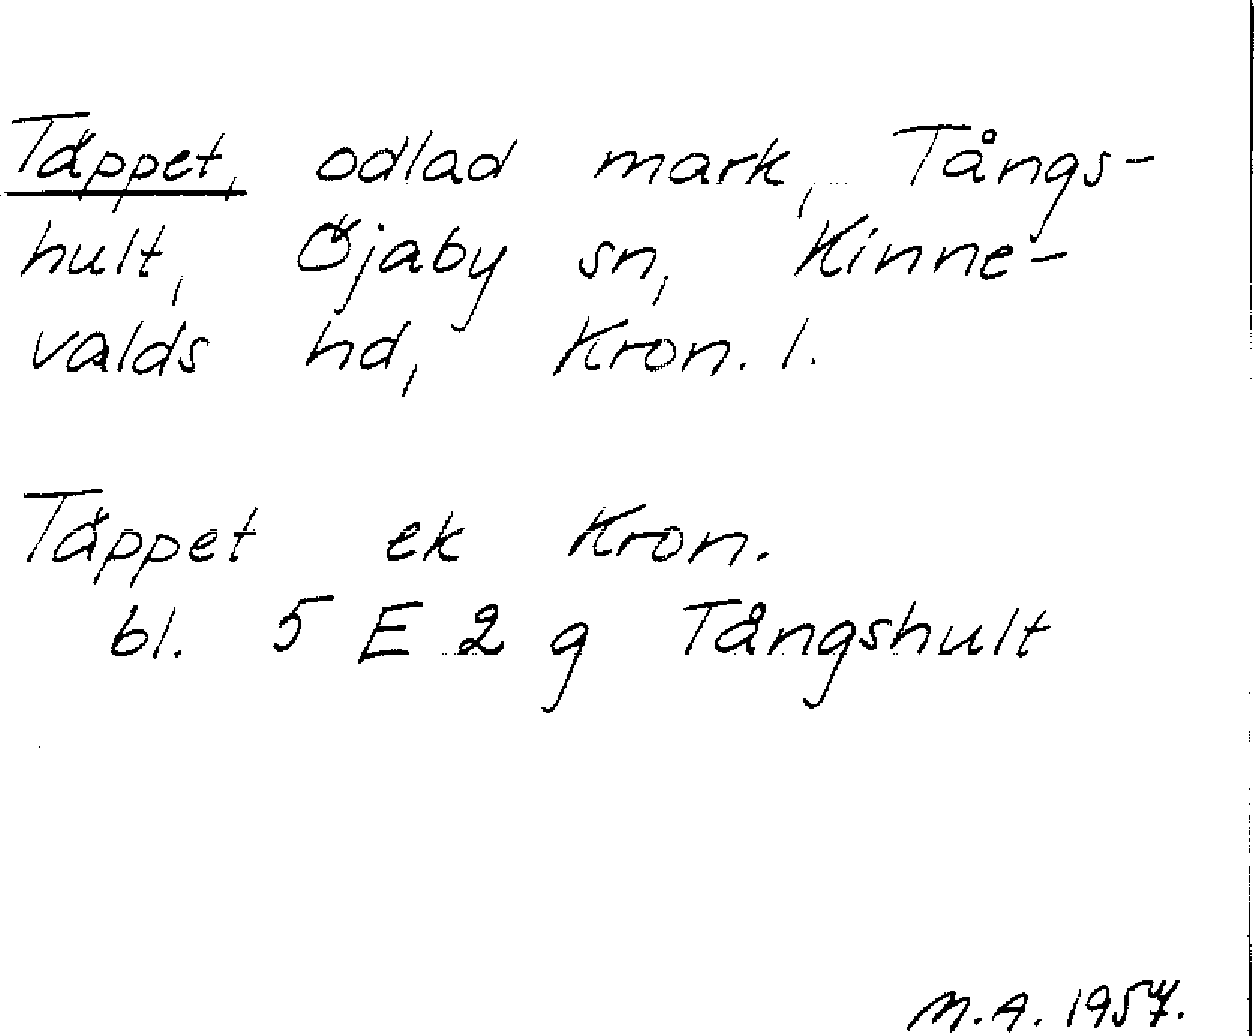 Täppet, odlad mark, Tångs-
hult, Öjaby sn, Kinne-
valds hd, Kron. l.
Täppet ek Kron.
bl. 5 E 2 g Tångshult
M.A. 1957.